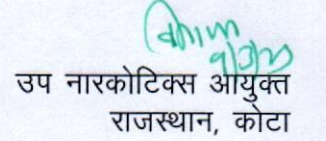 उप नारकोटिक्स आयुक्त
राजस्थान, कोटा